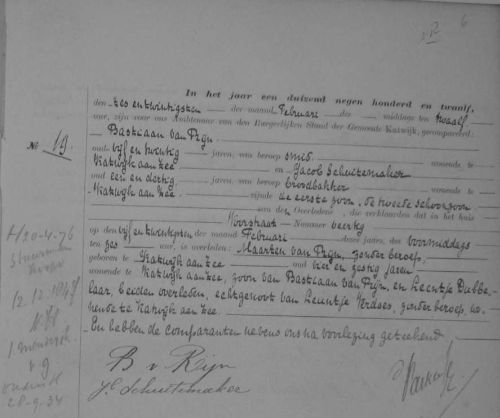 6
In het jaar een duizend negen honderd en twaalf,
den zes en twintigsten der maand Februari des middags ten twaalf
ure, zijn voor ons Ambtenaar van den Burgerlijken Stand der Gemeente Katwijk, gecompareerd:
Bastiaan van Rijn
oud vijf en twintig jaren, van beroep smid wonende te
Katwijk aan Zee en Jacob Schuitemaker
oud een en dertig jaren, van beroep broodbakker wonende te
Katwijk aan Zee zijnde de eerste zoon, de tweede schoonzoon
van den Overledene, die verklaarden dat in het huis
Voorstraat Nummer veertig
No 19.
op den vijf en twintigsten der maand Februari dezes jaars, des voormiddags
ten zes ure, is overleden: Maarten van Rijn, zonder beroep,
geboren te Katwijk aan Zee oud vier en zestig jaren
wonende te Katwijk aan Zee, zoon van Bastiaan van Rijn, en Leentje Dubbe-
laar, beiden overleden, echtgenoot van Leuntje, zonder beroep, wo-
nende te Katwijk aan Zee.
En hebben de comparanten nevens ons na voorlezing geteekend
B v Rijn
Jb Schuitemaker
H/20-4-76
12.12.1947
28-9-34